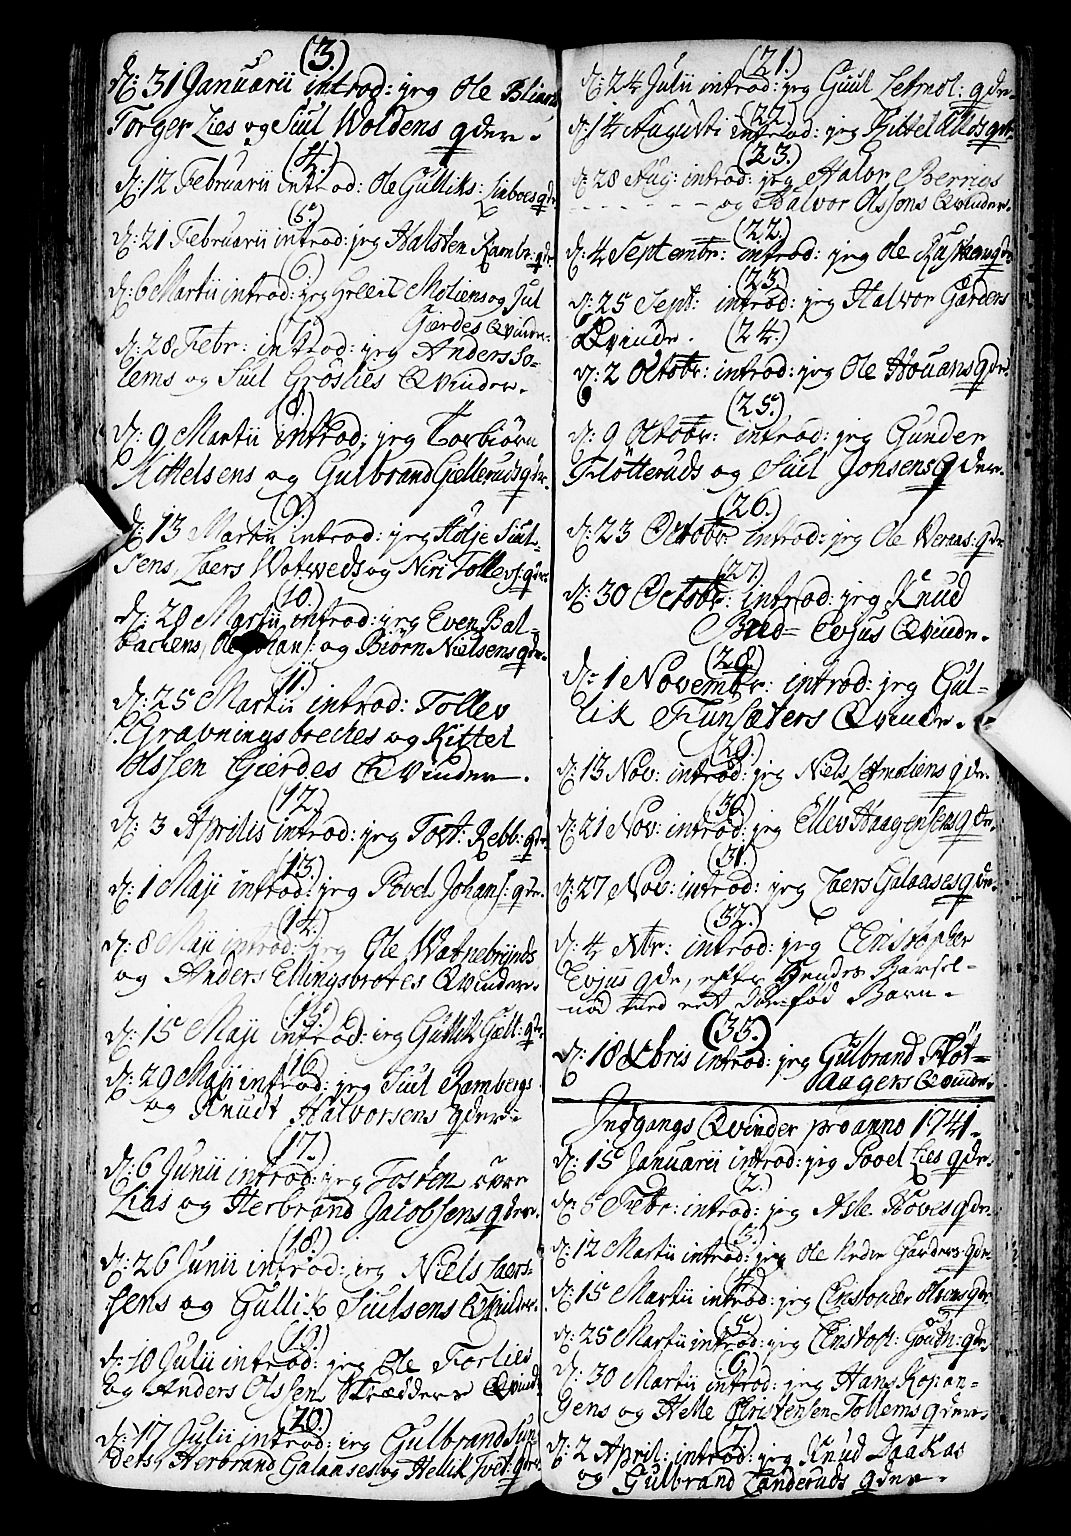 (3.)
d: 31 Januarii introd: jeg Ole Bliard
Torger Lies og Siul Woldens qder.
(4.)
d: 12 Februarii introd: Ole Gulliks: Lieboes qde
(5.)
d: 21 Februarii introd: jeg Halsten Ramb: qde.
(6.)
d: 6 Martii introd: jeg Moliens og Jul
Gierdes Qvinder.
d: 28 Febr: introd: jeg Anders So-
lems og Siul Grøslies Qvinder.
(8.)
d: 9 Martii introd: jeg Torbiørn
Kittelsens og Gulbrand Gielleruds qder.
(9.)
d: 13 Martii introd: jeg Holje Siul-
sens, Laers Wotweds og Niri Tollefs: qder.
(10.)
d: 20 Martii introd: jeg Even Bal-
backens, Ole Johans: og Biørn Nielsens qde.
(11.)
d: 25 Martii introd: Tollev
Gravningsbreches og Kittel
Olssen Gierdes Qvinder.
(12.)
d: 3 Aprilis introd: jeg Tort: Rebb: qde
(13.)
d: 1 Maji introd: jeg Povel Johans: qde.
(14.)
d: 8 Maji introd: jeg Ole Watnebrynds
og Anders Ellingsbrotes Qvinder.
(15.)
d: 15 Maji introd: jeg Gullik Giell: qde
(16.)
d: 29 Maji introd: jeg Siul Rambergs
og Knudt Halvorsens qder.
(17.)
d: 6 Junii introd: jeg Tosten
Lias og Herbrand Jacobsens qder.
(18.)
d: 26 Junii introd: jeg Niels Laers-
sens og Gullik Siulsens Qvinder.
(19.)
d: 10 Julii introd: jeg Ole Forlies
og Anders Olssen Skrædders Qvind:
(20.)
d: 17 Julii introd: jeg Gulbrand Sun-
dets, Herbrand Galaases og Hellik Tvet: qder
(21.)
d: 24 Julii introd: jeg Guul Letmol: qde.
(22.)
d: 14 Augusti introd: jeg Kittel qde
(23.)
d: 28 Aug: introd: jeg Halvor Berrigs
og Halvor Olssens Qvinder.
(22.)
d: 4 Septembr: introd: jeg Ole qde
(23.)
d: 25 Sept: introd: jeg Halvor Gardens
Qvinde.
(24.)
d: 2 Octobr: introd: jeg Ole Houans qde.
(25.)
d: 9 Octobr: introd: jeg Gunder
Fløtteruds og Siul Jonsens qder.
(26.)
d: 23 Octobr introd: jeg Ole Veraas: qde
(27.)
d: 30 Octobr: introd: jeg Knud
Evjus Qvinde.
(28.)
d: 1 Novembr: introd: jeg Gul-
lik Funsæters Qvinde.
(29.)
d: 13 Nov: introd: jeg Niels Letmoliens qde.
(30.)
d: 21 Nov: introd: jeg Ellev Haagensens qde.
(31.)
d: 27 Nov: introd: jeg Laers Galaases qde.
(32.)
d: 4 Xbr: introd: jeg Christopher
Evjus qde, efter hendes Barsel-
nød med eet Barn.
(33.)
d: 18 Xbris introd: jeg Gulbrand Fløt-
aagers Qvinde.
Indgangs Qvinder pro anno 1741.
d: 15 Januarii introd: jeg Povel Lies qde.
(2.)
d: 5 Febr: introd: jeg Asle Hoves qde.
(3.)
d: 12 Martii introd: jeg Ole Nedre Garders qde.
(4.)
d: 15 Martii introd: jeg Christopher qde.
(5.)
d: 25 Martii introd: jeg Christoff: qde
(6.)
d: 30 Martii introd: jeg Hans Kopan-
gens og Helle Christensen Tollems qder.
(7.)
d: 2 April: introd: jeg Knud Daakas
og Gulbrand Landeruds qder.